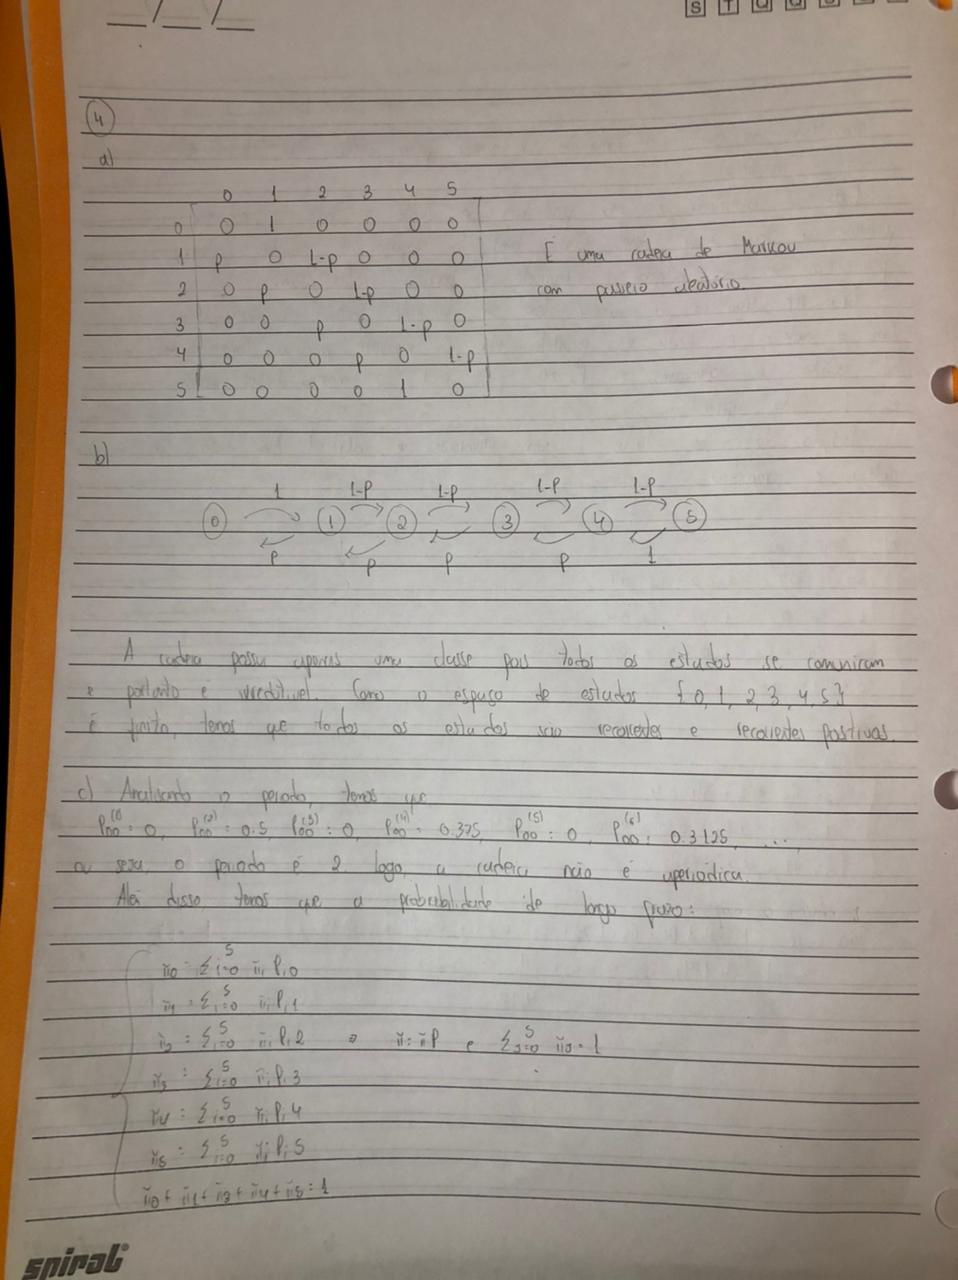 S T Q Q S
4
a)
0 1 2 3 4 5
0 0 1 0 0 0 0
1 p 0 1-p 0 0 0 É uma cadeia de Markov
2 0 p 0 1-p 0 0 com passeio aleatório.
3 0 0 p 0 1-p 0
4 0 0 0 p 0 1-p
5 0 0 0 0 1 0
b)
1 1-p 1-p 1-p 1-p
0 1 2 3 4 5
p p p p 1
A cadeia possui apenas uma classe pois todos os estados se comunicam
e portanto é irredutível. Como o espaço de estados {0, 1, 2, 3, 4, 5}
é finito, temos que todos os estados são recorrentes e recorrentes positivas.
c) Analisando o período, temos que
P00^(1) = 0, P00^(2) = 0.5 P00^(3) = 0, P00^(4) = 0.375, P00^(5) = 0 P00^(6) = 0.3125, ...,
ou seja o período é 2 logo, a cadeia não é aperiódica.
Além disso temos que a probabilidade de longo prazo:
π0 = Σ i=0^5 πi Pi0
π1 = Σ i=0^5 πi Pi1
π2 = Σ i=0^5 πi Pi2 ⇒ π = πP e Σ j=0^5 πj = 1
π3 = Σ i=0^5 πi Pi3
π4 = Σ i=0^5 πi Pi4
π5 = Σ i=0^5 πi Pi5
π0 + π1 + π3 + π4 + π5 = 1
spiral